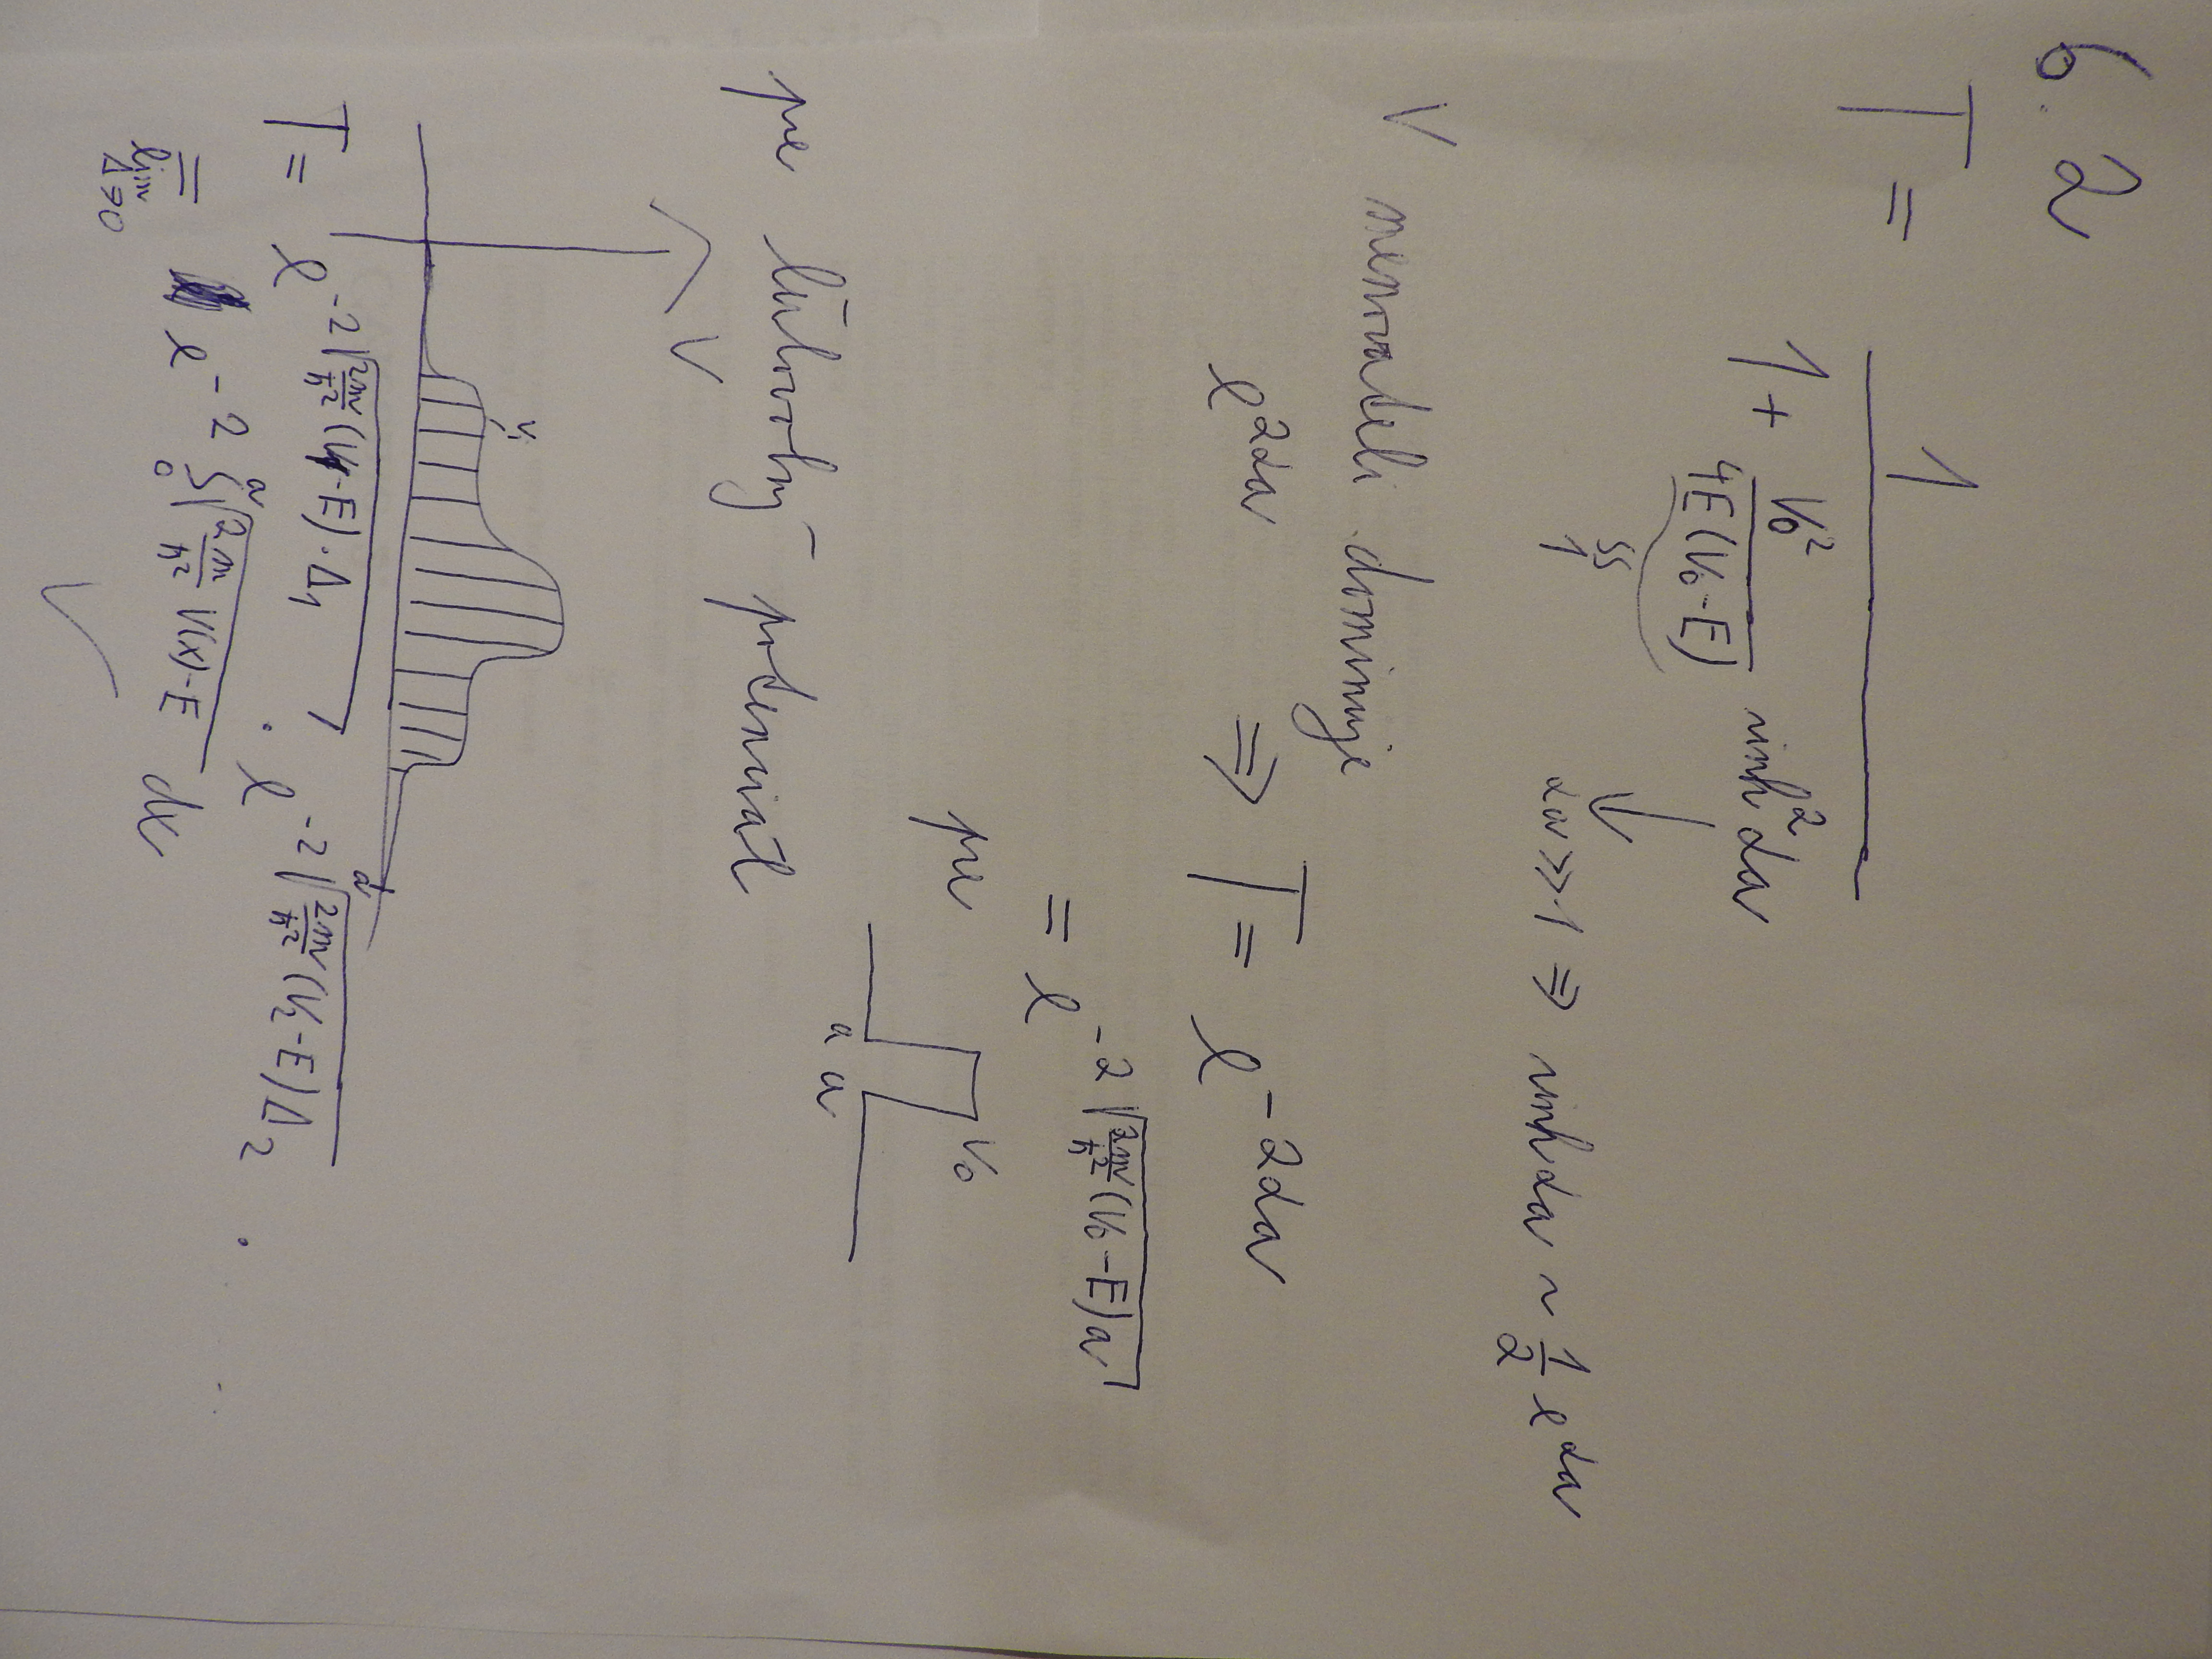 6.2
T = 1 / (1 + V₀² / (4E(V₀-E)) sinh² αa)
≈ 1
αa >> 1 ⇒ sinh αa ~ 1/2 e^(αa)
V menovateli dominuje
e^(2αa) ⇒ T = e^(-2αa)
= e^(-2√(2m/ħ² (V₀-E)a))
pre
V₀
a a
pre ľubovoľný potenciál
V
V₁
a
T = e^(-2√(2m/ħ² (V₁-E)·Δ₁)) · e^(-2√(2m/ħ² (V₂-E)Δ₂)) · ...
= lim Δ→0 e^(-2 ∫₀ᵃ √(2m/ħ² V(x)-E) dx)